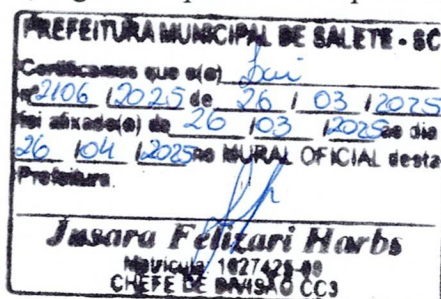 PREFEITURA MUNICIPAL DE SALETE - SC
Certificamos que o(a) Lei
nº 2106 / 2025 de 26 / 03 / 2025
foi afixado(a) de 26 / 03 / 2025 ao dia
26 / 04 / 2025 no MURAL OFICIAL desta
Prefeitura.
Jusara Felizari Harbs
Matrícula 1027426-00
CHEFE DE DIVISÃO CC3